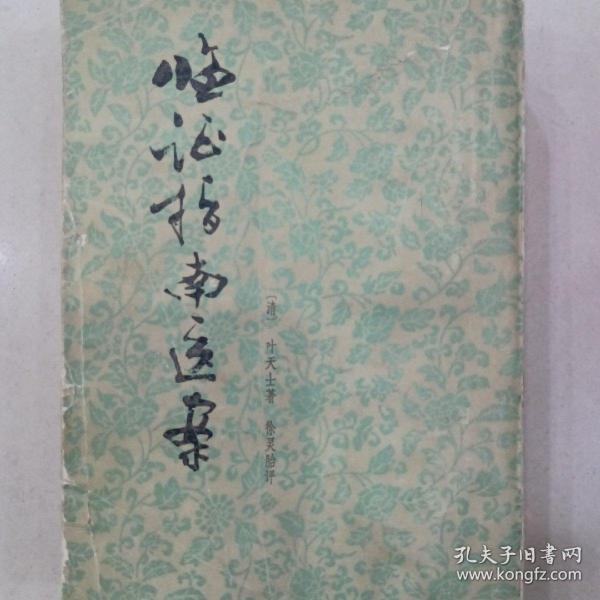 临证指南医案
〔清〕 叶天士著 徐灵胎评
孔夫子旧书网
www.kongfz.com